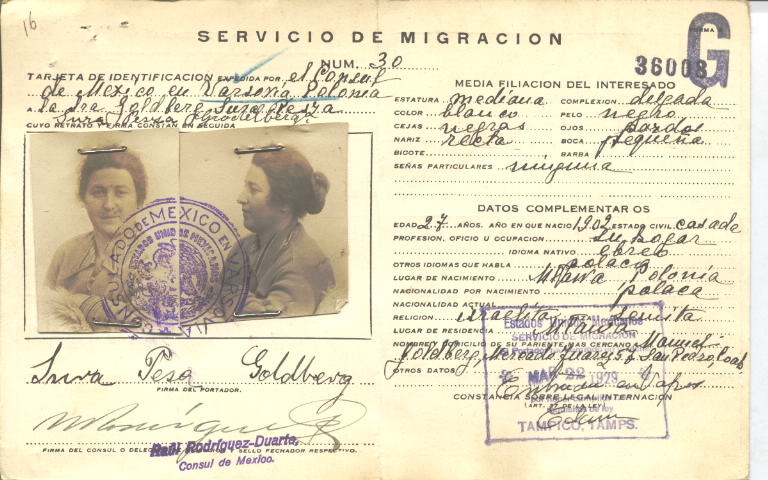 16
SERVICIO DE MIGRACION
FORMA
G
NUM. 30
36008
TARJETA DE IDENTIFICACION EXPEDIDA POR el Consul
de Mexico en Varsovia Polonia
A La Sra Goldberg, Sura Pesza
CUYO RETRATO Y FIRMA CONSTAN EN SEGUIDA
CONSULADO DE MEXICO EN VARSOVIA
ESTADOS UNIDOS MEXICANOS
Sura Pesa Goldberg
FIRMA DEL PORTADOR.
Raúl Rodríguez-Duarte,
Consul de Mexico.
FIRMA DEL CONSUL O SELLO FECHADOR RESPECTIVO.
MEDIA FILIACION DEL INTERESADO
ESTATURA mediana COMPLEXION delgada
COLOR blanco PELO negro
CEJAS negras OJOS pardos
NARIZ recta BOCA pequeña
BIGOTE BARBA
SEÑAS PARTICULARES ninguna
DATOS COMPLEMENTARIOS
EDAD 27 AÑOS. AÑO EN QUE NACIO 1902 ESTADO CIVIL casada
PROFESION, OFICIO U OCUPACION su hogar
IDIOMA NATIVO ebreo
OTROS IDIOMAS QUE HABLA polaco
LUGAR DE NACIMIENTO Polonia
NACIONALIDAD POR NACIMIENTO polaca
NACIONALIDAD ACTUAL
RELIGION israelita RAZA Semita
LUGAR DE RESIDENCIA
NOMBRE Y DOMICILIO DE SU PARIENTE MAS CERCANO Manuel
Goldberg, San Pedro, Coah
OTROS DATOS
Estados Unidos Mexicanos
SERVICIO DE MIGRACION
22
CONSTANCIA SOBRE LEGAL INTERNACION
(ART. 27 DE LA LEY)
TAMPICO, TAMPS.